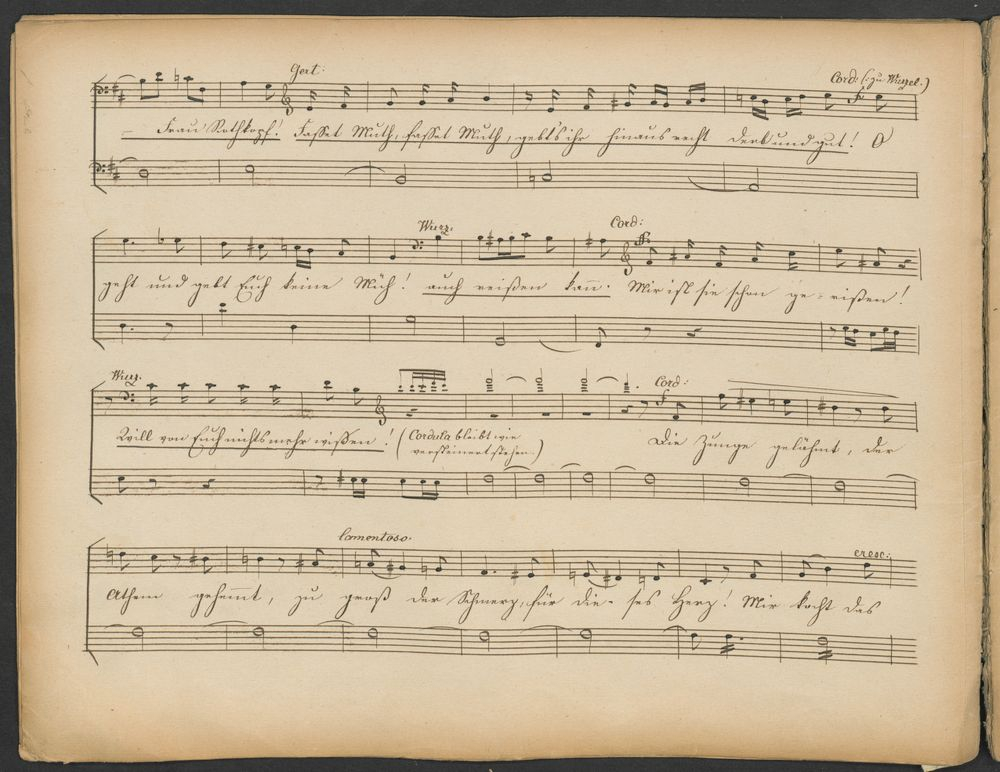 Gert: Cord: (: zu Wurzel.)
Frau Rothkopf! Fasset Muth, fasset Muth, gebt's ihr hinaus recht derb und gut! O
Wurz. Cord:
geht und gebt Euch keine Müh! auch reißen kann. Mir ist sie schon ge-rissen!
Wurz. Cord:
Will von Euch nichts mehr wissen! (Cordula bleibt wie Die Zunge gelähmt, der
versteinert stehen.)
lamentoso. cresc:
Athem gehemmt, zu groß der Schmerz, für die-ses Herz! Mir kocht das